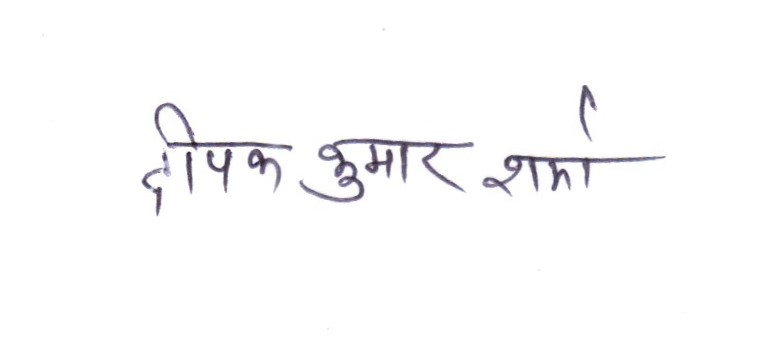 दीपक कुमार शर्मा